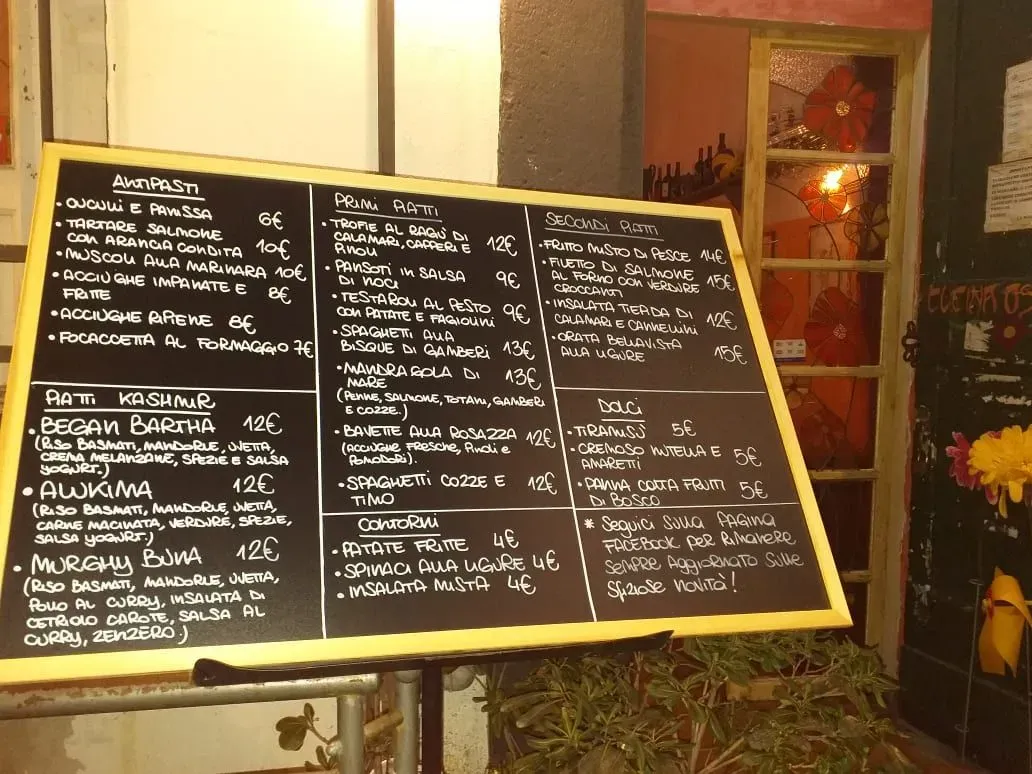 ANTIPASTI
• CUCULLI E PANISSA 6€
• TARTARE SALMONE
CON ARANCIA CONDITA 10€
• MUSCOLI ALLA MARINARA 10€
• ACCIUGHE IMPANATE E 8€
FRITTE
• ACCIUGHE RIPIENE 8€
• FOCACCETTA AL FORMAGGIO 7€
PIATTI KASHMIR
• BEGAN BARTHA 12€
(RISO BASMATI, MANDORLE, UVETTA,
CREMA MELANZANE, SPEZIE E SALSA
YOGURT.)
• AWKIMA 12€
(RISO BASMATI, MANDORLE, UVETTA,
CARNE MACINATA, VERDURE, SPEZIE,
SALSA YOGURT.)
• MURGHY BUNA 12€
(RISO BASMATI, MANDORLE, UVETTA,
POLLO AL CURRY, INSALATA DI
CETRIOLO CAROTE, SALSA AL
CURRY, ZENZERO.)
PRIMI PIATTI
• TROFIE AL RAGÙ DI
CALAMARI, CAPPERI E 12€
PINOLI
• PANSOTI IN SALSA 9€
DI NOCI
• TESTAROLI AL PESTO
CON PATATE E FAGIOLINI 9€
• SPAGHETTI ALLA
BISQUE DI GAMBERI 13€
• MANDRAGOLA DI 13€
MARE
(PENNE, SALMONE, TOTANI, GAMBERI
E COZZE.)
• BAVETTE ALLA ROSAZZA 12€
(ACCIUGHE FRESCHE, PINOLI E
POMODORI).
• SPAGHETTI COZZE E 12€
TIMO
CONTORNI
• PATATE FRITTE 4€
• SPINACI ALLA LIGURE 4€
• INSALATA MISTA 4€
SECONDI PIATTI
• FRITTO MISTO DI PESCE 14€
• FILETTO DI SALMONE
AL FORNO CON VERDURE 15€
CROCCANTI
• INSALATA TIEPIDA DI
CALAMARI E CANNELLINI 12€
• ORATA BELLAVISTA
ALLA LIGURE 15€
DOLCI
• TIRAMISÙ 5€
• CREMOSO NUTELLA E 5€
AMARETTI
• PANNA COTTA FRUTTI 5€
DI BOSCO
* SEGUICI SULLA PAGINA
FACEBOOK PER RIMANERE
SEMPRE AGGIORNATO SULLE
SFIZIOSE NOVITÀ!
CUCINA